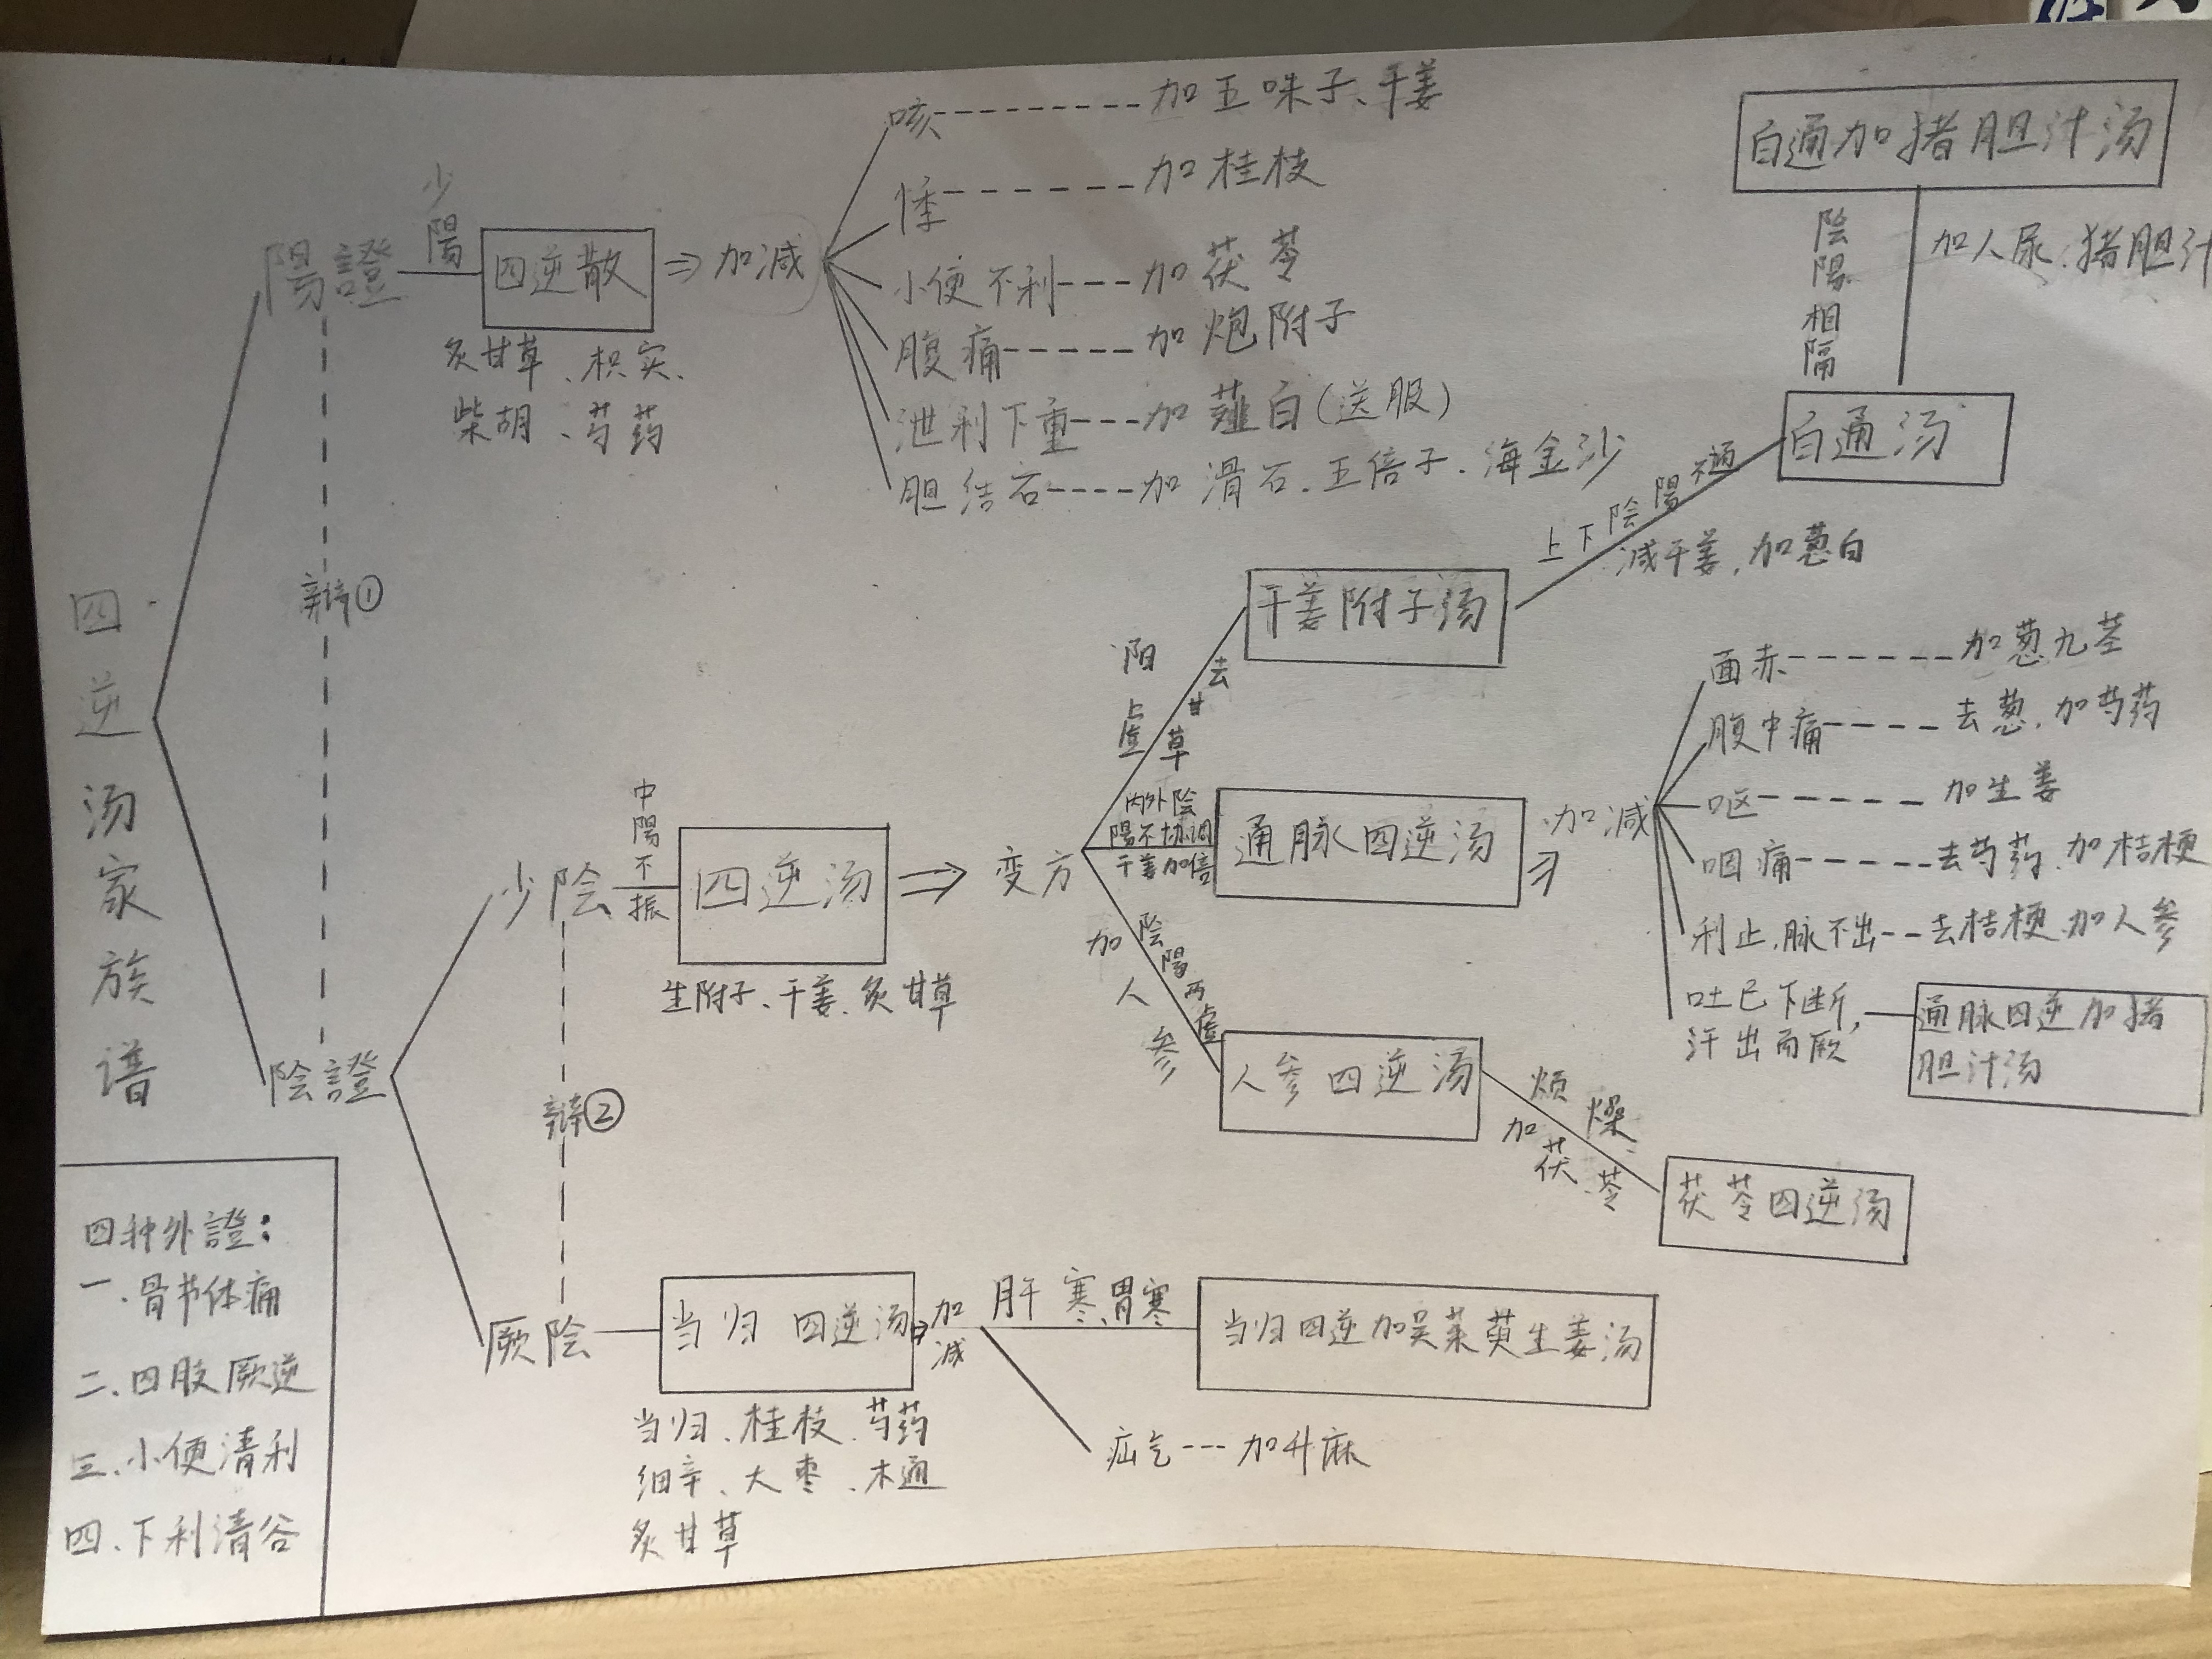 四逆汤家族谱
陽證
少陽
四逆散
炙甘草、枳实、
柴胡、芍药
⇒加减
咳--------加五味子、干姜
悸------加桂枝
小便不利---加茯苓
腹痛-----加炮附子
泄利下重---加薤白(送服)
胆结石----加滑石、五倍子、海金沙
辩①
陰證
少陰
中陽不振
四逆汤
生附子、干姜、炙甘草
⇒变方
阳上虚
去甘草
干姜附子汤
上下陰陽不通
减干姜,加葱白
白通汤
陰陽相隔
加人尿、猪胆汁
白通加猪胆汁汤
内外陰
陽不协调
干姜加倍
通脉四逆汤
⇒加减
面赤------加葱九茎
腹中痛----去葱,加芍药
呕------加生姜
咽痛-----去芍药、加桔梗
利止、脉不出--去桔梗、加人参
吐已下断,
汗出而厥
通脉四逆加猪
胆汁汤
陰陽两虚
加人参
人参四逆汤
烦燥
加茯苓
茯苓四逆汤
辩②
厥陰
当归四逆汤
当归、桂枝、芍药
细辛、大枣、木通
炙甘草
⇒加减
肝寒、胃寒
当归四逆加吴茱萸生姜汤
疝气---加升麻
四种外證:
一、骨节体痛
二、四肢厥逆
三、小便清利
四、下利清谷